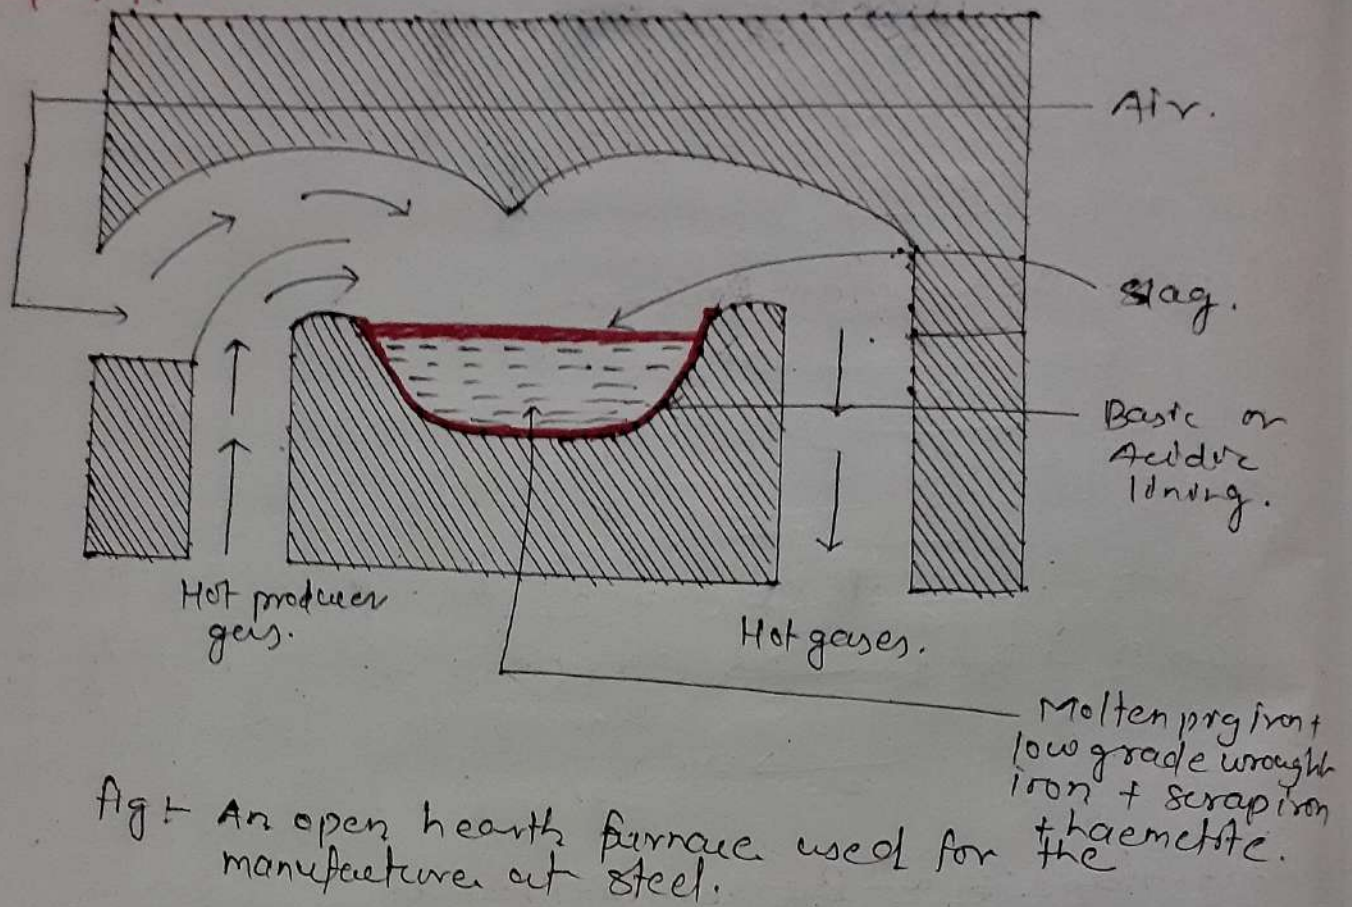 Air.
Slag.
Basic or
Acidic
lining.
Hot producer
gas.
Hot gases.
Molten pig iron +
low grade wrought
iron + scrap iron
+ haemetite.
Fig :- An open hearth furnace used for the
manufacture of steel.